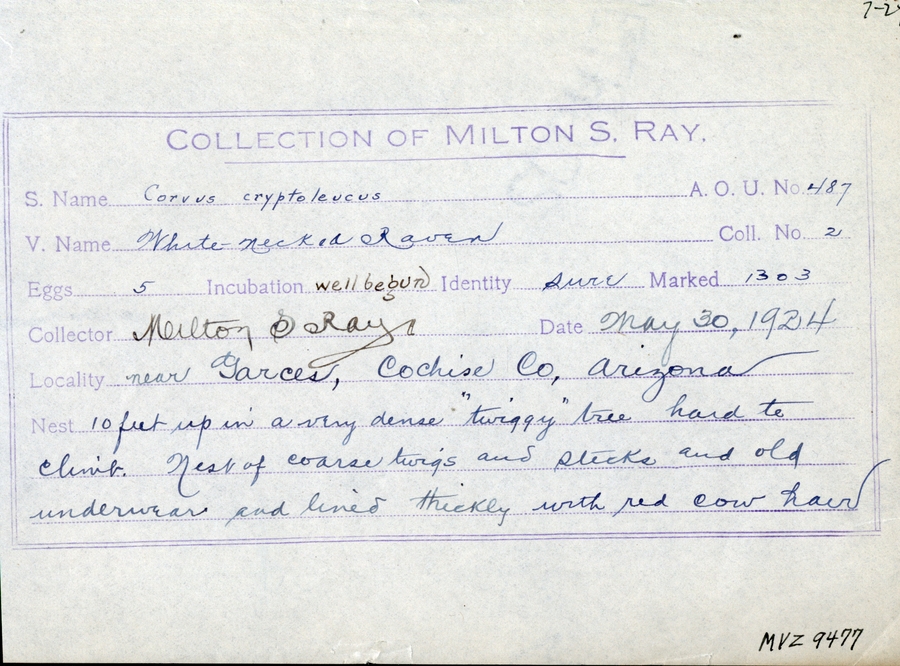 COLLECTION OF MILTON S. RAY.
S. Name Corvus cryptoleucus A. O. U. No. 487
V. Name White-necked Raven Coll. No. 2
Eggs 5 Incubation well begun Identity sure Marked 1303
Collector Milton S Ray Date May 30, 1924
Locality near Garces, Cochise Co, Arizona
Nest 10 feet up in a very dense "twiggy" tree hard to
climb. Nest of coarse twigs and sticks and old
underwear and lined thickly with red cow hair
MVZ 9477